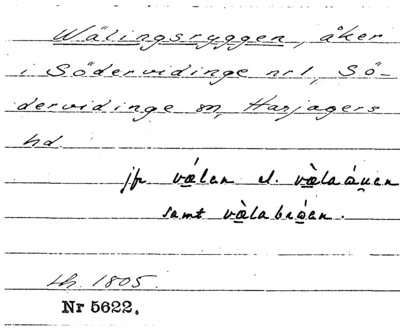 Wälingsryggen, åker
i Södervidinge nr 1, Sö-
dervidinge sn, Harjagers
hd.
jfr vǽlen el. vœ̀laáu̯en
samt vœ̀labráen.
Lh. 1805.
Nr 5622.